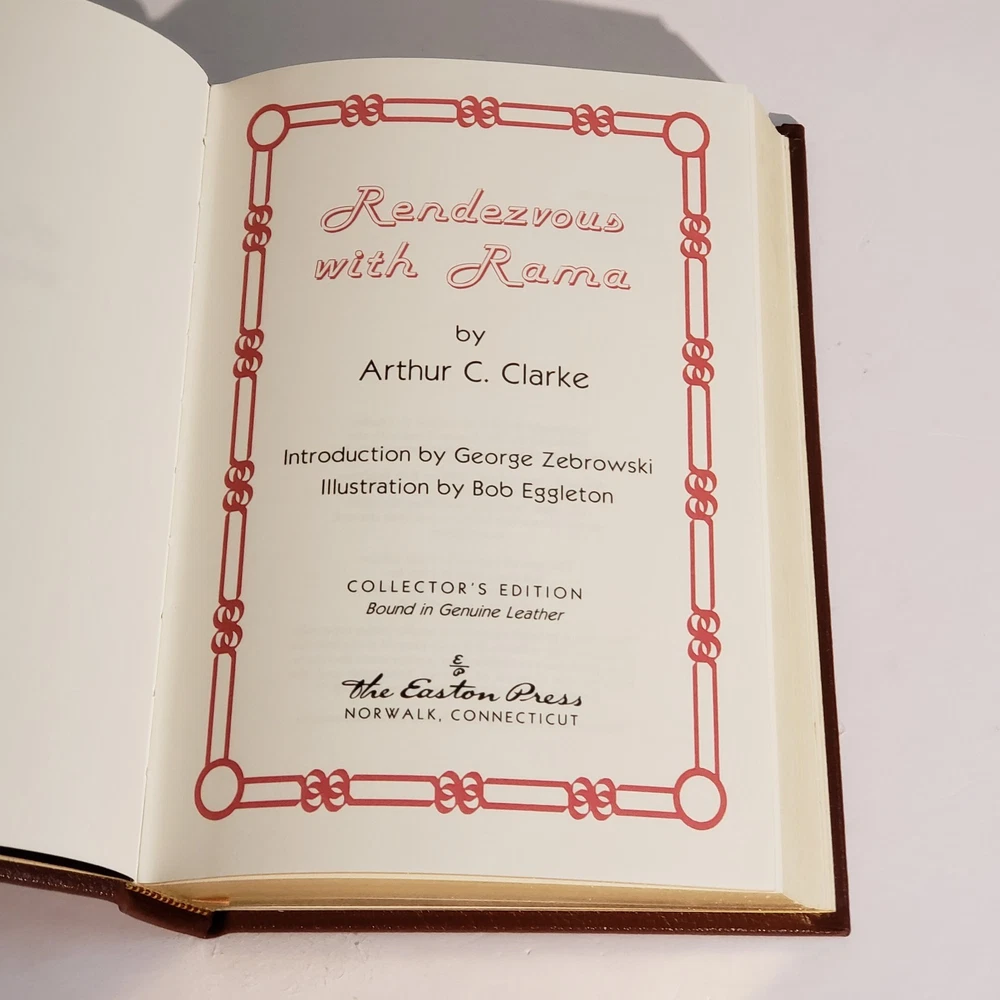 Rendezvous
with Rama
by
Arthur C. Clarke
Introduction by George Zebrowski
Illustration by Bob Eggleton
COLLECTOR'S EDITION
Bound in Genuine Leather
E
P
The Easton Press
NORWALK, CONNECTICUT